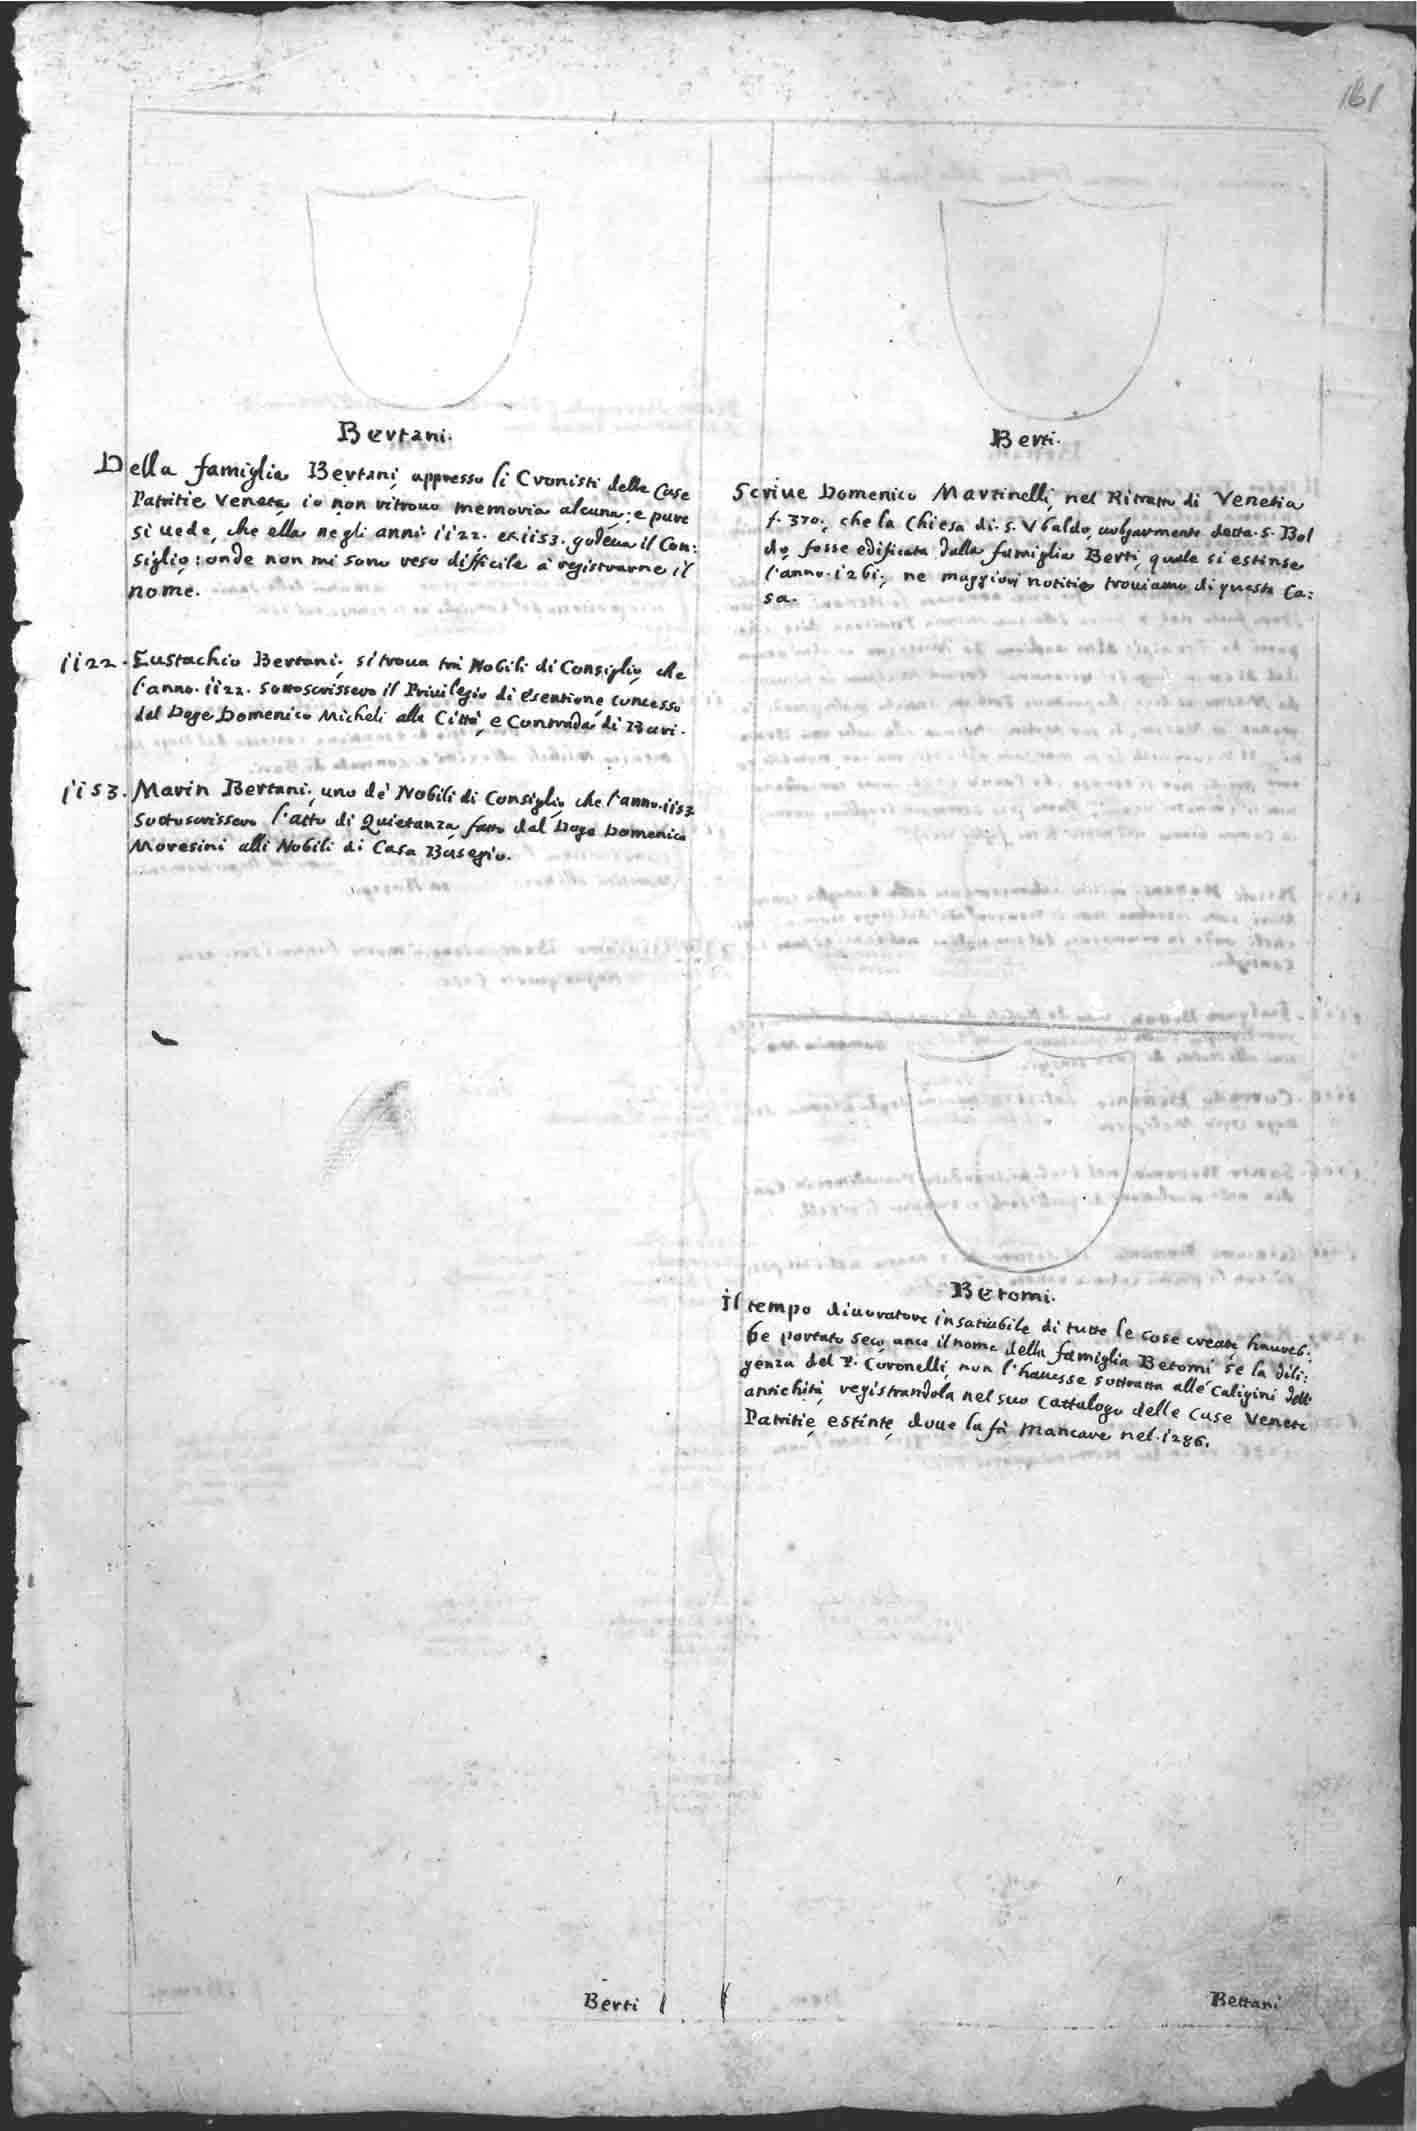 161
Bertani.
Della famiglia Bertani, appresso li Cronisti delle Case
Patritie Venete, io non ritrouo memoria alcuna; e pure
si uede, che ella negli anni. 1122. et 1153. godeua il Con:
siglio: onde non mi sono reso difficile à registrarne il
nome.
1122. Eustachio Bertani, si troua trà Nobili di Consiglio, che
l'anno. 1122. sottoscrissero il Priuilegio di esentione concesso
dal Doge Domenico Micheli alla Città, e Contrada di Bari.
1153. Marin Bertani, uno de' Nobili di Consiglio, che l'anno. 1153
Sottoscrissero l'atto di Quietanza, fatto dal Doge Domenico
Moresini alli Nobili di Casa Basegio.
Berti
Berti.
Scriue Domenico Martinelli, nel Ritratto di Venetia
f. 370., che la Chiesa di. S. Vbaldo, uolgarmente detta. S. Bol
do, fosse edificata dalla famiglia Berti, quale si estinse
l'anno. 1261., ne maggiori notitie trouiamo di questa Ca:
sa.
Betomi.
Il tempo diuoratore insatiabile di tutte le cose create, haureb:
be portato seco anco il nome della famiglia Betomi se la dili:
genza del P. Coronelli, non l'hauesse sottratta alle Caligini dell'
antichità, registrandola nel suo Cattalogo delle Case Venete
Patritie, estinte, doue la fà mancare nel. 1286.
Bettani